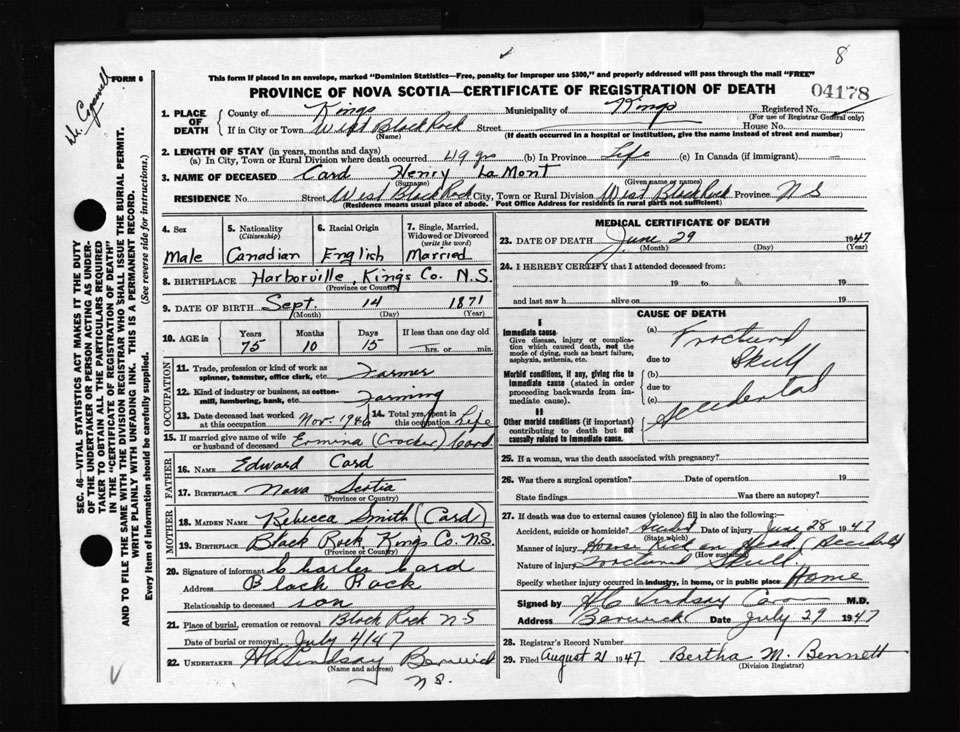 8
This form if placed in an envelope, marked "Dominion Statistics—Free, penalty for improper use $300," and properly addressed will pass through the mail "FREE"
FORM 6
PROVINCE OF NOVA SCOTIA—CERTIFICATE OF REGISTRATION OF DEATH
04178
1. PLACE OF DEATH
County of Kings Municipality of Kings Registered No.
(For use of Registrar General only)
If in City or Town West Black Rock Street House No.
(Name) (If death occurred in a hospital or institution, give the name instead of street and number)
2. LENGTH OF STAY (in years, months and days)
(a) In City, Town or Rural Division where death occurred 49 yrs (b) In Province Life (c) In Canada (if immigrant) —
3. NAME OF DECEASED Card Henry LaMont
(Surname) (Given name or names)
RESIDENCE No. Street West Black Rock City, Town or Rural Division West Black Rock Province N S
(Residence means usual place of abode. Post Office Address for residents in rural parts not sufficient)
4. Sex Male
5. Nationality (Citizenship) Canadian
6. Racial Origin English
7. Single, Married, Widowed or Divorced (write the word) Married
8. BIRTHPLACE Harborville, Kings Co. N.S.
(Province or Country)
9. DATE OF BIRTH Sept. 14 1871
(Month) (Day) (Year)
10. AGE in Years Months Days If less than one day old
75 10 15 hrs. or min.
OCCUPATION
11. Trade, profession or kind of work as spinner, teamster, office clerk, etc. Farmer
12. Kind of industry or business, as cotton-mill, lumbering, bank, etc. Farming
13. Date deceased last worked at this occupation Nov. 1946 14. Total yrs. spent in this occupation Life
15. If married give name of wife or husband of deceased Ermina (Crocker) Card
FATHER
16. NAME Edward Card
17. BIRTHPLACE Nova Scotia
(Province or Country)
MOTHER
18. MAIDEN NAME Rebecca Smith (Card)
19. BIRTHPLACE Black Rock Kings Co. N.S.
(Province or Country)
20. Signature of informant Charles Card
Address Black Rock
Relationship to deceased son
21. Place of burial, cremation or removal Black Rock N-S
Date of burial or removal July 4/47
22. UNDERTAKER H A Lindsay Berwick
(Name and address)
N S.
MEDICAL CERTIFICATE OF DEATH
23. DATE OF DEATH June 29 1947
(Month) (Day) (Year)
24. I HEREBY CERTIFY that I attended deceased from:
19 to 19
and last saw h alive on 19
CAUSE OF DEATH
I
Immediate cause
Give disease, injury or complication which caused death, not the mode of dying, such as heart failure, asphyxia, asthenia, etc.
Morbid conditions, if any, giving rise to immediate cause (stated in order proceeding backwards from immediate cause).
II
Other morbid conditions (if important) contributing to death but not causally related to immediate cause.
(a) Fractured
due to Skull
(b)
due to
(c) Accidental
25. If a woman, was the death associated with pregnancy?
26. Was there a surgical operation? Date of operation 19
State findings Was there an autopsy?
27. If death was due to external causes (violence) fill in also the following:
Accident, suicide or homicide? Date of injury June 28 1947
(State which)
Manner of injury on Head
(How sustained)
Nature of injury Fractured Skull.
Specify whether injury occurred in industry, in home, or in public place Home
Signed by Lindsay M.D.
Address Berwick Date July 29 1947
28. Registrar's Record Number
29. Filed August 21 1947 Bertha M. Bennett
(Division Registrar)
SEC. 46—VITAL STATISTICS ACT MAKES IT THE DUTY
OF THE UNDERTAKER OR PERSON ACTING AS UNDER-
TAKER TO OBTAIN ALL THE PARTICULARS REQUIRED
IN THE "CERTIFICATE OF REGISTRATION OF DEATH"
AND TO FILE THE SAME WITH THE DIVISION REGISTRAR WHO SHALL ISSUE THE BURIAL PERMIT.
WRITE PLAINLY WITH UNFADING INK. THIS IS A PERMANENT RECORD.
Every item of information should be carefully supplied. (See reverse side for instructions.)